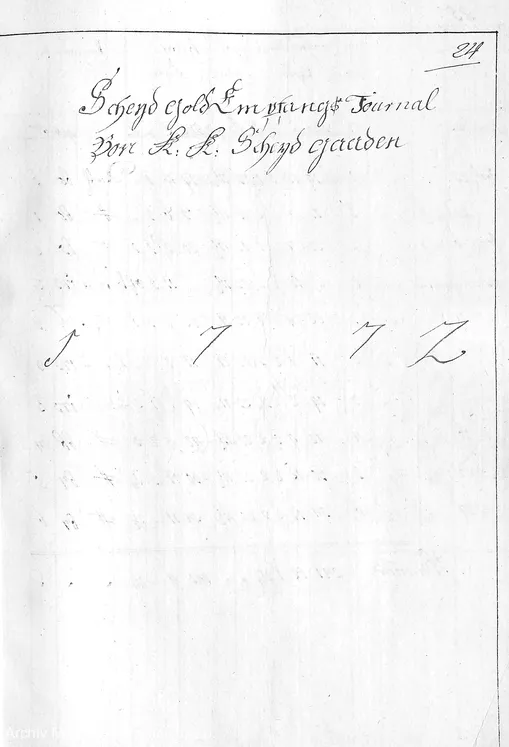 24
Scheyd Gold Empfangs Journal
Von K: K: Scheyd Gaaden
1 7 7 2
Archiv